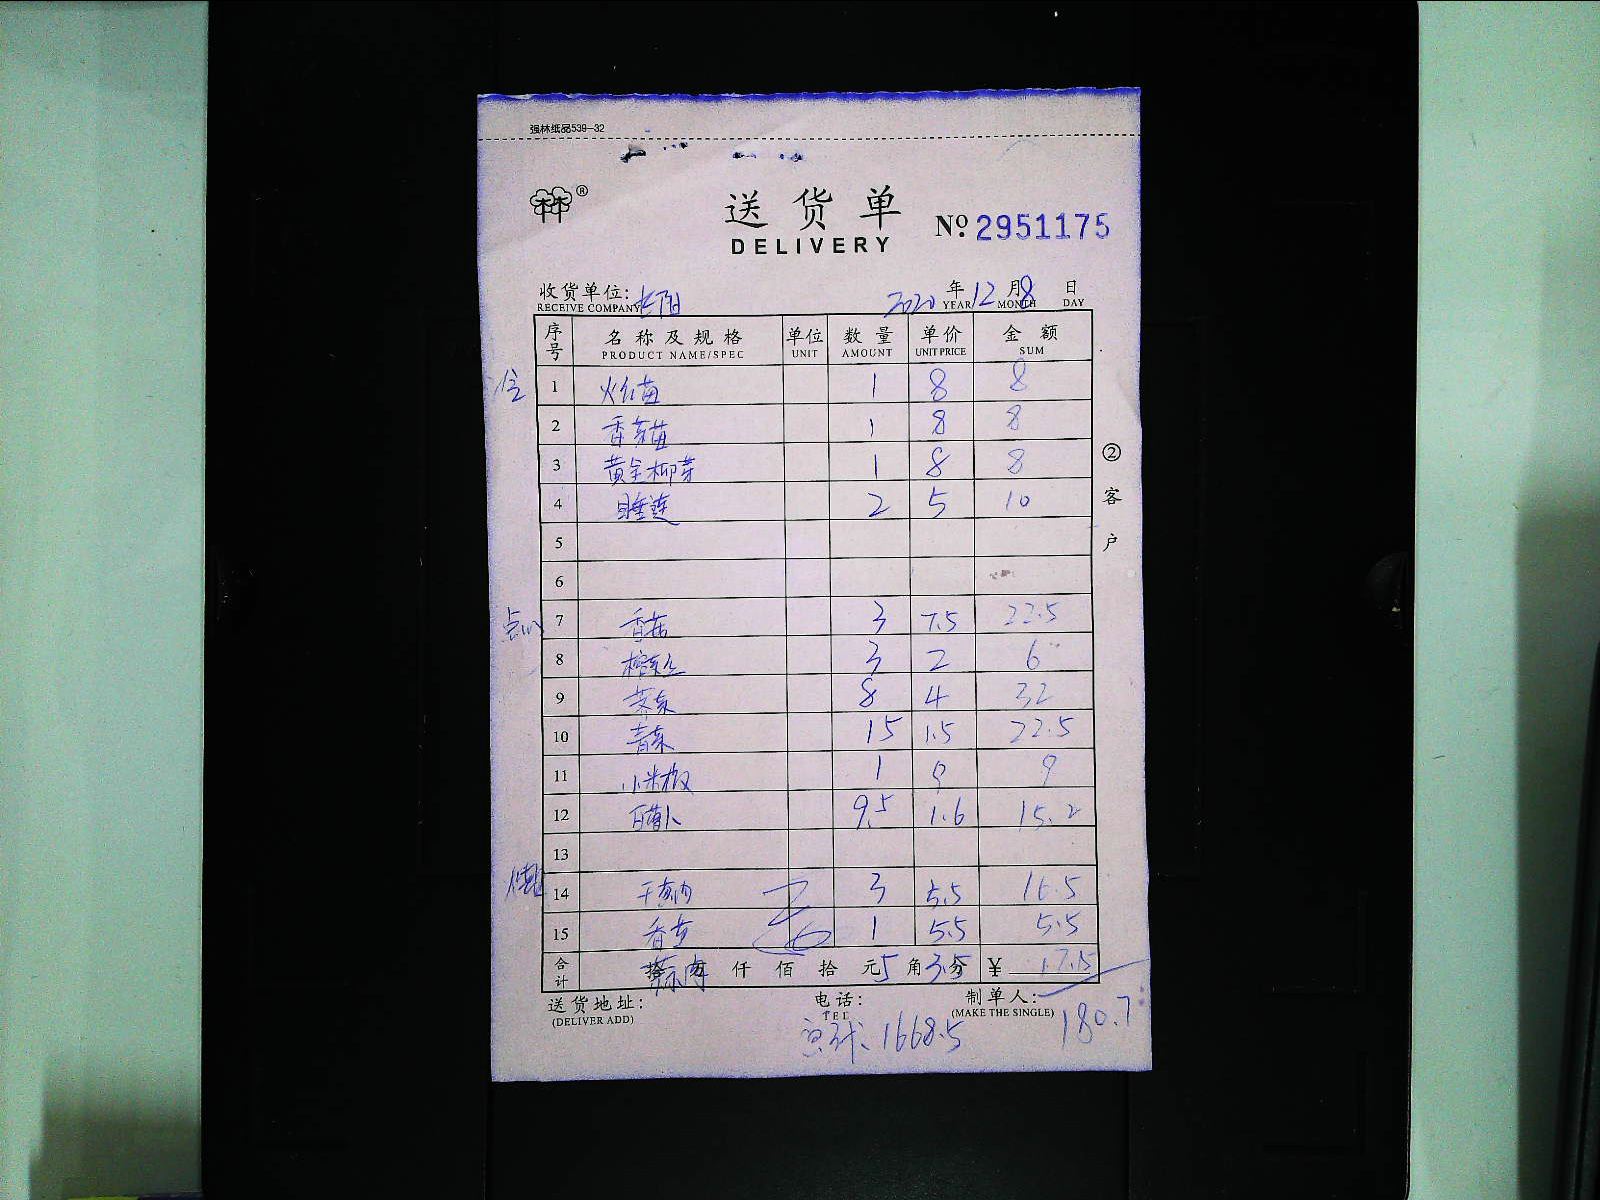 强林纸品539-32
送货单 №.2951175
DELIVERY
收货单位: 2020年12月8日
RECEIVE COMPANY YEAR MONTH DAY
序号 名称及规格 单位 数量 单价 金额
PRODUCT NAME/SPEC UNIT AMOUNT UNIT PRICE SUM
1 火红苗 1 8 8
2 香芽苗 1 8 8
3 黄金柳芽 1 8 8
4 睡莲 2 5 10
5
6
7 香菇 3 7.5 22.5
8 榨菜丝 3 2 6
9 8 4 32
10 青菜 15 1.5 22.5
11 小米椒 1 9 9
12 白萝卜 9.5 1.6 15.2
13
14 3 5.5 16.5
15 香芹 1 5.5 5.5
合计 仟佰拾元5角3.5分 ¥ 17.5
送货地址: 电话: 制单人:
(DELIVER ADD) TEL (MAKE THE SINGLE)
180.7
总计: 1668.5
②客户